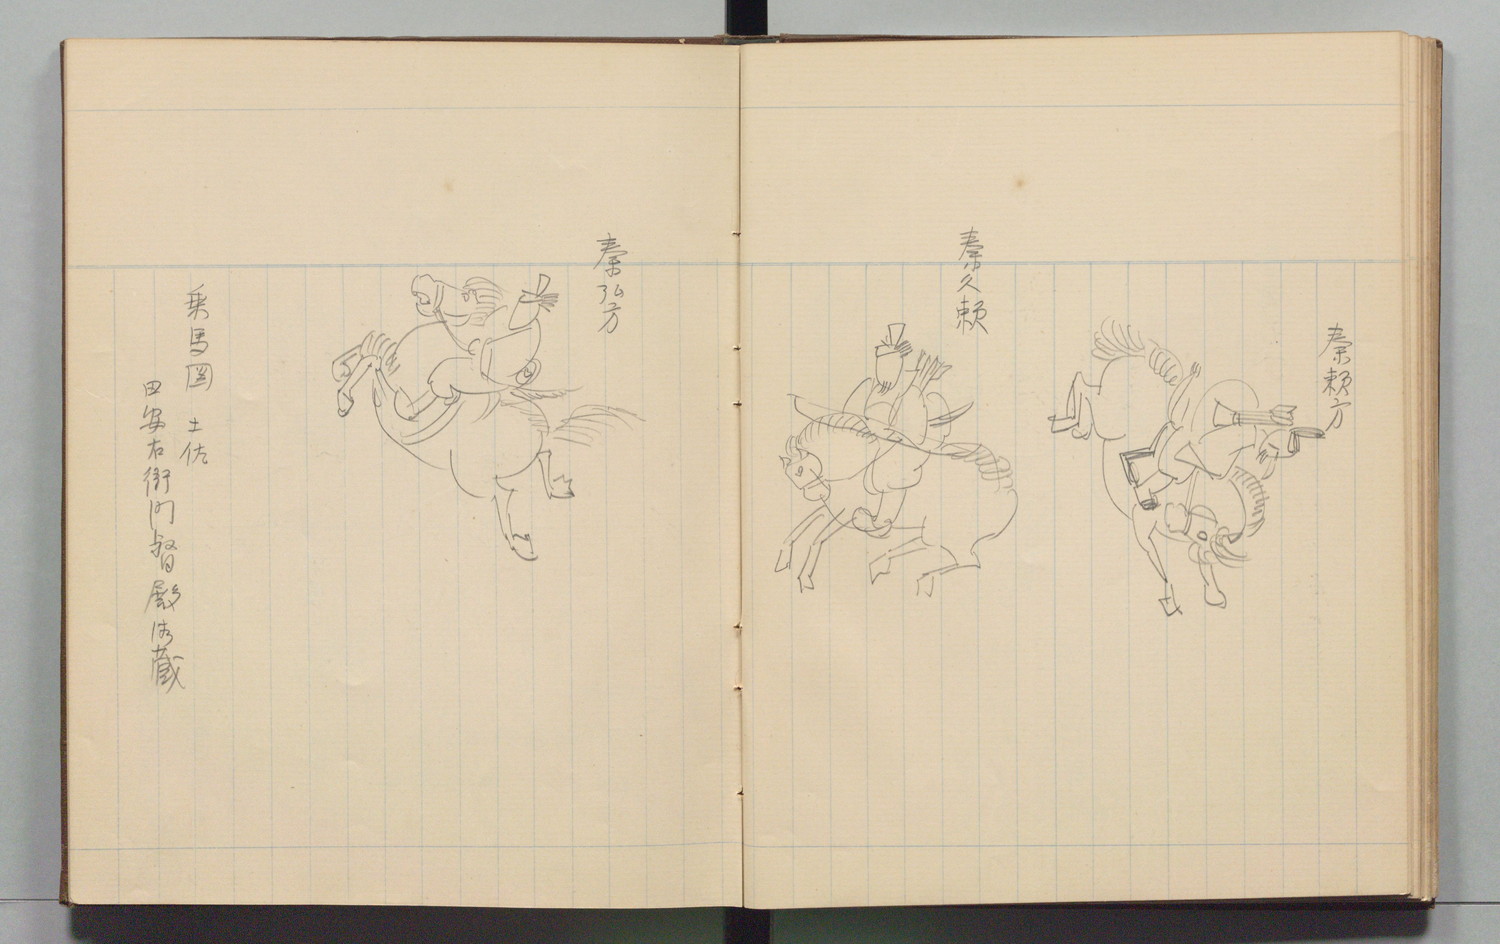 秦頼方
秦久頼
秦弘方
乗馬図 土佐
田安右衛門督殿御蔵